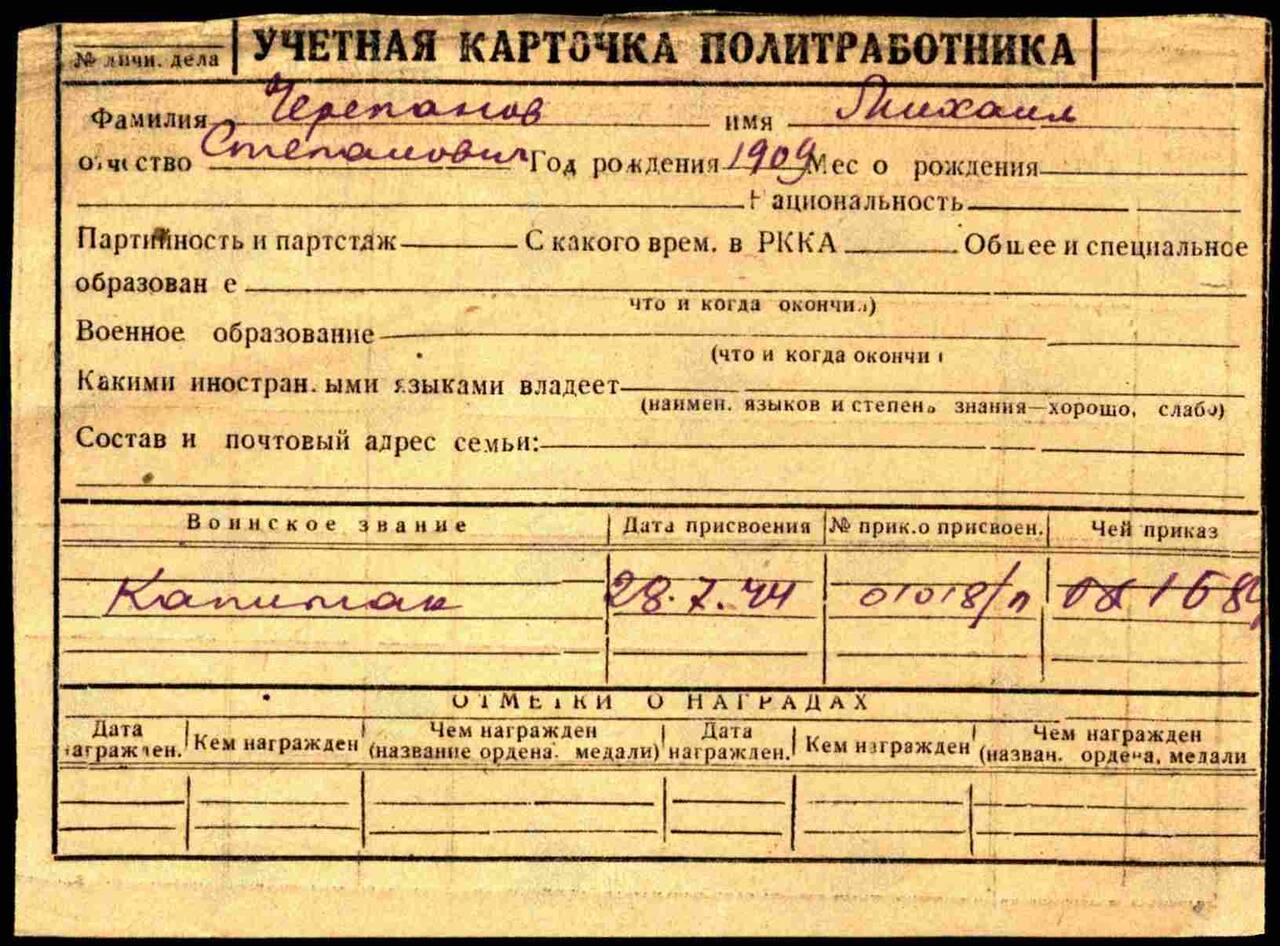 № личн. дела УЧЕТНАЯ КАРТОЧКА ПОЛИТРАБОТНИКА
Фамилия Черепанов имя Михаил
отчество Степанович Год рождения 1909 Мес о рождения
Национальность
Партийность и партстаж С какого врем. в РККА Общее и специальное
образован е
что и когда окончил)
Военное образование
(что и когда окончи
Какими иностран.ыми языками владеет
(наимен. языков и степень знания—хорошо, слабо)
Состав и почтовый адрес семьи:
Воинское звание Дата присвоения № прик.о присвоен. Чей приказ
Капитан 28.7.44 01018/п
ОТМЕТКИ О НАГРАДАХ
Дата награжден. Кем награжден Чем награжден (название ордена. медали) Дата награжден. Кем награжден Чем награжден (назван. ордена, медали